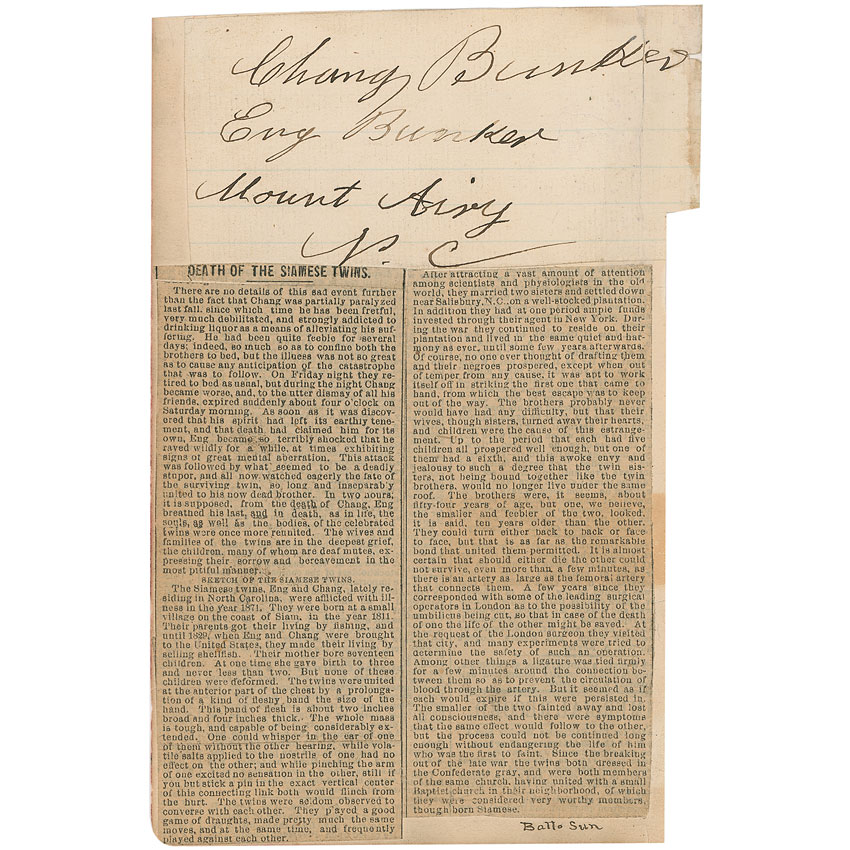 Chang Bunker
Eng Bunker
Mount Airy
N. C
DEATH OF THE SIAMESE TWINS.
There are no details of this sad event further
than the fact that Chang was partially paralyzed
last fall, since which time he has been fretful,
very much debilitated, and strongly addicted to
drinking liquor as a means of alleviating his suf-
fering. He had been quite feeble for several
days; indeed, so much so as to confine both the
brothers to bed, but the illness was not so great
as to cause any anticipation of the catastrophe
that was to follow. On Friday night they re-
tired to bed as usual, but during the night Chang
became worse, and, to the utter dismay of all his
friends, expired suddenly about four o'clock on
Saturday morning. As soon as it was discov-
ered that his spirit had left its earthly tene-
ment, and that death had claimed him for its
own, Eng became so terribly shocked that he
raved wildly for a while, at times exhibiting
signs of great mental aberration. This attack
was followed by what seemed to be a deadly
stupor, and all now watched eagerly the fate of
the surviving twin, so long and inseparably
united to his now dead brother. In two hours,
it is supposed, from the death of Chang, Eng
breathed his last, and in death, as in life, the
souls, as well as the bodies, of the celebrated
twins were once more reunited. The wives and
families of the twins are in the deepest grief,
the children, many of whom are deaf mutes, ex-
pressing their sorrow and bereavement in the
most pitiful manner.
SKETCH OF THE SIAMESE TWINS.
The Siamese twins, Eng and Chang, lately re-
siding in North Carolina, were afflicted with ill-
ness in the year 1871. They were born at a small
village on the coast of Siam, in the year 1811.
Their parents got their living by fishing, and
until 1829, when Eng and Chang were brought
to the United States, they made their living by
selling shellfish. Their mother bore seventeen
children. At one time she gave birth to three
and never less than two. But none of these
children were deformed. The twins were united
at the anterior part of the chest by a prolonga-
tion of a kind of fleshy band the size of the
hand. This band of flesh is about two inches
broad and four inches thick. The whole mass
is tough, and capable of being considerably ex-
tended. One could whisper in the ear of one
of them without the other hearing, while vola-
tile salts applied to the nostrils of one had no
effect on the other; and while pinching the arm
of one excited no sensation in the other, still if
you but stick a pin in the exact vertical center
of this connecting link both would flinch from
the hurt. The twins were seldom observed to
converse with each other. They played a good
game of draughts, made pretty much the same
moves, and at the same time, and frequently
played against each other.
After attracting a vast amount of attention
among scientists and physiologists in the old
world, they married two sisters and settled down
near Salisbury, N.C., on a well-stocked plantation.
In addition they had at one period ample funds
invested through their agent in New York. Dur-
ing the war they continued to reside on their
plantation and lived in the same quiet and har-
mony as ever, until some few years afterwards.
Of course, no one ever thought of drafting them
and their negroes prospered, except when out
of temper from any cause, it was apt to work
itself off in striking the first one that came to
hand, from which the best escape was to keep
out of the way. The brothers probably never
would have had any difficulty, but that their
wives, though sisters, turned away their hearts,
and children were the cause of this estrange-
ment. Up to the period that each had five
children all prospered well enough, but one of
them had a sixth, and this awoke envy and
jealousy to such a degree that the twin sis-
ters, not being bound together like the twin
brothers, would no longer live under the same
roof. The brothers were, it seems, about
fifty-four years of age, but one, we believe,
the smaller and feebler of the two, looked,
it is said, ten years older than the other.
They could turn either back to back or face
to face, but that is as far as the remarkable
bond that united them permitted. It is almost
certain that should either die the other could
not survive, even more than a few minutes, as
there is an artery as large as the femoral artery
that connects them. A few years since they
corresponded with some of the leading surgical
operators in London as to the possibility of the
umbilicus being cut, so that in case of the death
of one the life of the other might be saved. At
the request of the London surgeon they visited
that city, and many experiments were tried to
determine the safety of such an operation.
Among other things a ligature was tied firmly
for a few minutes around the connection be-
tween them so as to prevent the circulation of
blood through the artery. But it seemed as if
each would expire if this were persisted in.
The smaller of the two fainted away and lost
all consciousness, and there were symptoms
that the same effect would follow to the other,
but the process could not be continued long
enough without endangering the life of him
who was the first to faint. Since the breaking
out of the late war the twins both dressed in
the Confederate gray, and were both members
of the same church, having united with a small
Baptist church in their neighborhood, of which
they were considered very worthy members,
though born Siamese.
Balto Sun